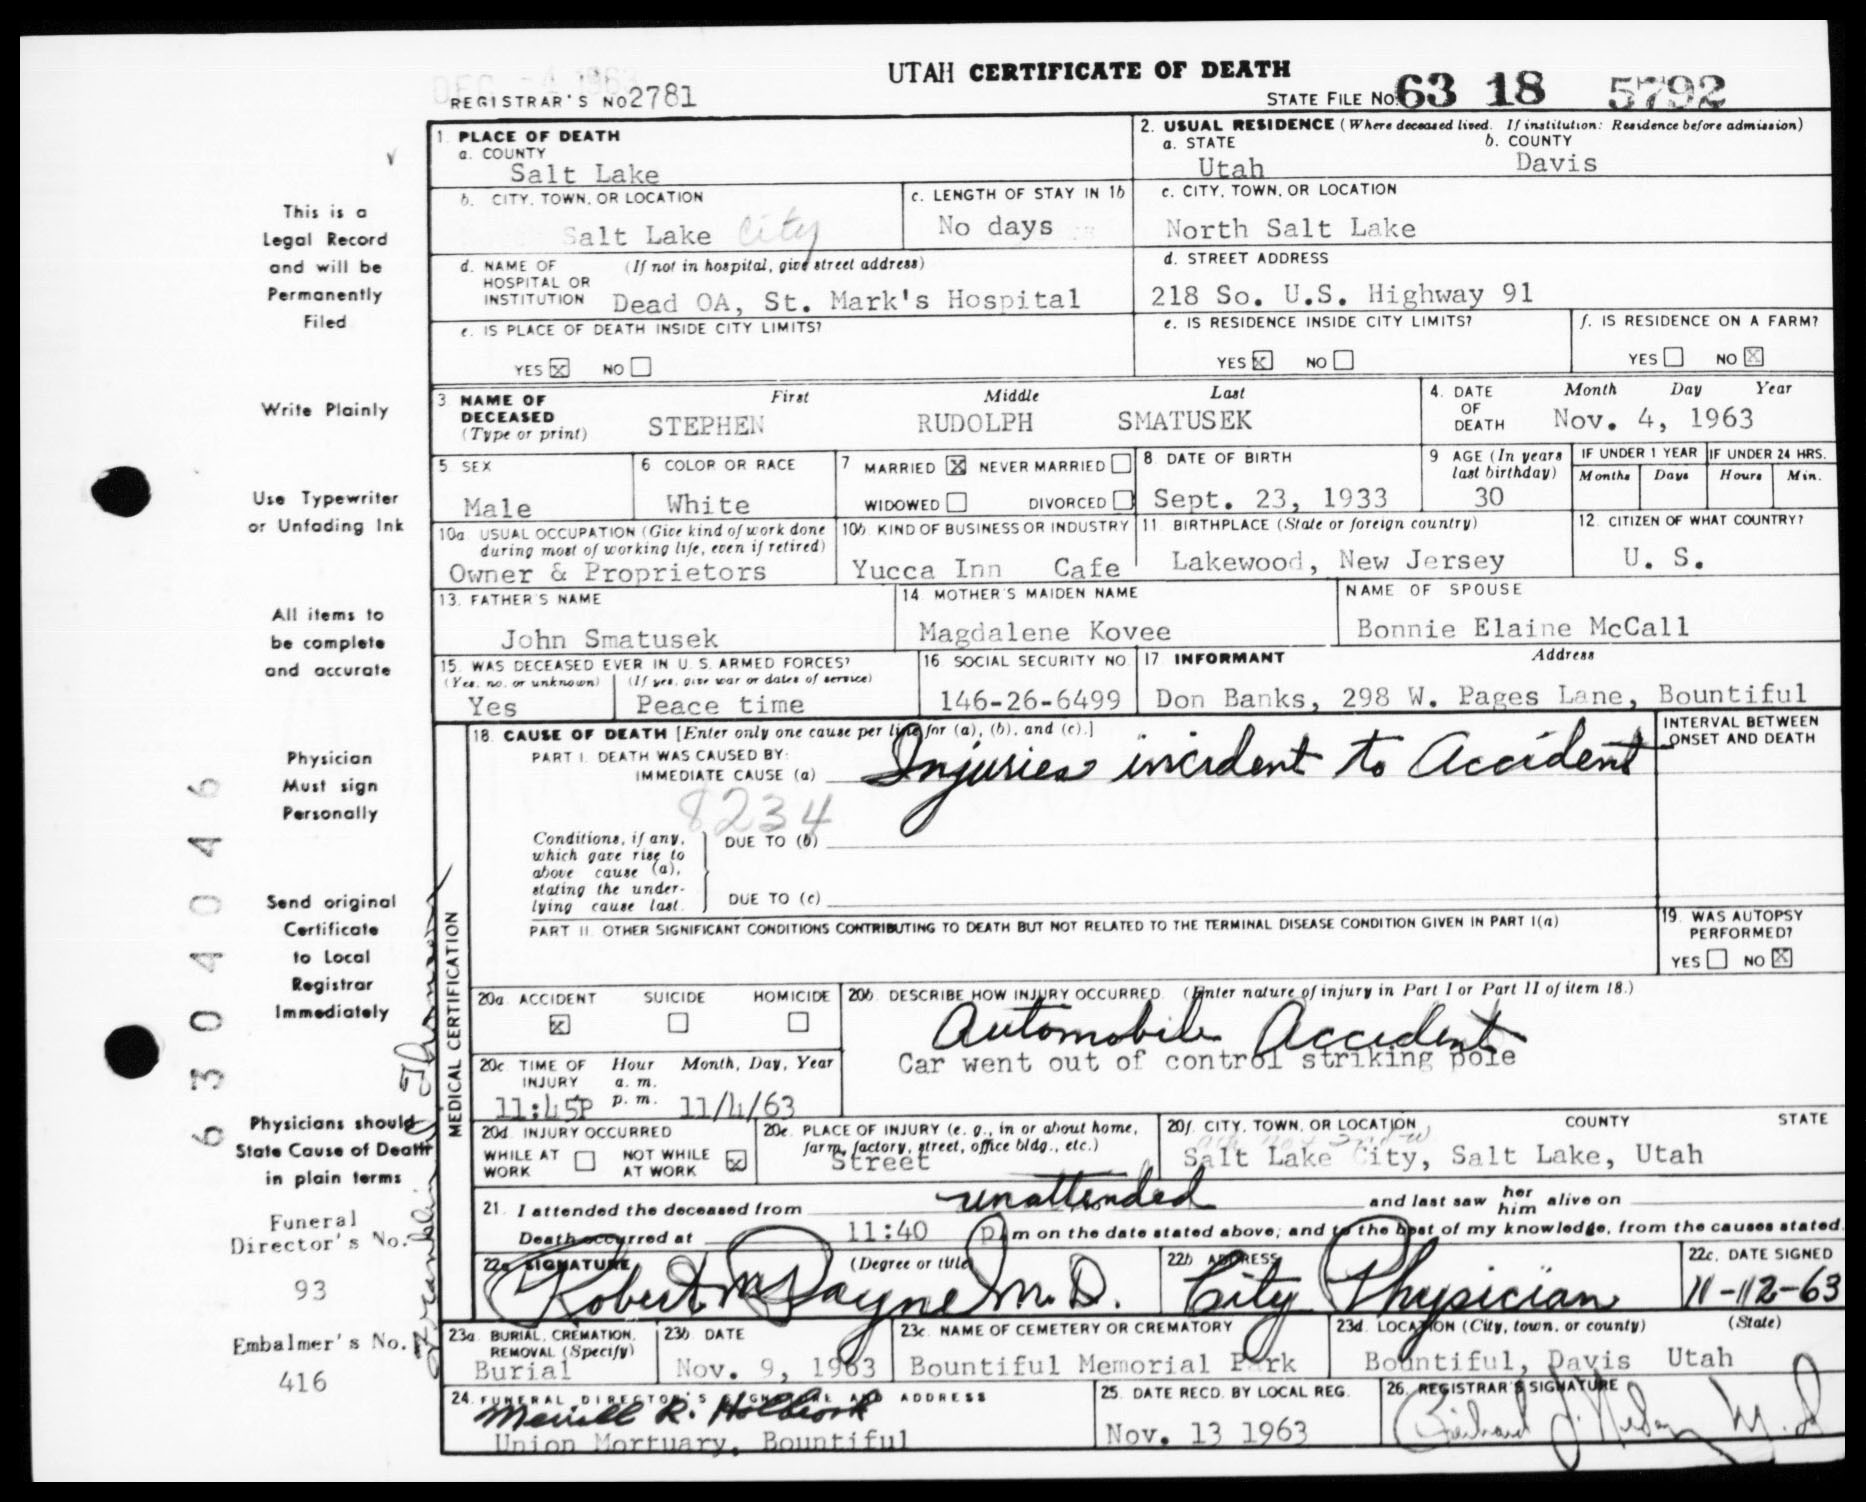 UTAH CERTIFICATE OF DEATH
DEC -4 1963
REGISTRAR'S NO 2781
STATE FILE NO. 63 18 5792
1. PLACE OF DEATH
a. COUNTY
Salt Lake
2. USUAL RESIDENCE (Where deceased lived. If institution: Residence before admission)
a. STATE b. COUNTY
Utah Davis
b. CITY, TOWN, OR LOCATION
Salt Lake City
c. LENGTH OF STAY IN 1b
No days
c. CITY, TOWN, OR LOCATION
North Salt Lake
d. NAME OF HOSPITAL OR INSTITUTION (If not in hospital, give street address)
Dead OA, St. Mark's Hospital
d. STREET ADDRESS
218 So. U.S. Highway 91
e. IS PLACE OF DEATH INSIDE CITY LIMITS?
YES X NO
e. IS RESIDENCE INSIDE CITY LIMITS?
YES X NO
f. IS RESIDENCE ON A FARM?
YES NO X
3. NAME OF DECEASED (Type or print)
First Middle Last
STEPHEN RUDOLPH SMATUSEK
4. DATE OF DEATH
Month Day Year
Nov. 4, 1963
5. SEX
Male
6. COLOR OR RACE
White
7 MARRIED X NEVER MARRIED
WIDOWED DIVORCED
8. DATE OF BIRTH
Sept. 23, 1933
9 AGE (In years last birthday)
30
IF UNDER 1 YEAR
Months Days
IF UNDER 24 HRS.
Hours Min.
10a. USUAL OCCUPATION (Give kind of work done during most of working life, even if retired)
Owner & Proprietors
10b. KIND OF BUSINESS OR INDUSTRY
Yucca Inn Cafe
11. BIRTHPLACE (State or foreign country)
Lakewood, New Jersey
12. CITIZEN OF WHAT COUNTRY?
U. S.
13. FATHER'S NAME
John Smatusek
14. MOTHER'S MAIDEN NAME
Magdalene Kovee
NAME OF SPOUSE
Bonnie Elaine McCall
15. WAS DECEASED EVER IN U. S. ARMED FORCES?
(Yes, no, or unknown) (If yes, give war or dates of service)
Yes Peace time
16. SOCIAL SECURITY NO.
146-26-6499
17. INFORMANT Address
Don Banks, 298 W. Pages Lane, Bountiful
18. CAUSE OF DEATH [Enter only one cause per line for (a), (b), and (c).]
INTERVAL BETWEEN ONSET AND DEATH
PART I. DEATH WAS CAUSED BY:
IMMEDIATE CAUSE (a) Injuries incident to Accident
8234
Conditions, if any, which gave rise to above cause (a), stating the underlying cause last.
DUE TO (b)
DUE TO (c)
PART II. OTHER SIGNIFICANT CONDITIONS CONTRIBUTING TO DEATH BUT NOT RELATED TO THE TERMINAL DISEASE CONDITION GIVEN IN PART I(a)
19. WAS AUTOPSY PERFORMED?
YES NO X
MEDICAL CERTIFICATION
20a. ACCIDENT SUICIDE HOMICIDE
X
20b. DESCRIBE HOW INJURY OCCURRED. (Enter nature of injury in Part I or Part II of item 18.)
Automobile Accident
Car went out of control striking pole
20c. TIME OF INJURY Hour a. m. p. m. Month, Day, Year
11:45P 11/4/63
20d. INJURY OCCURRED
WHILE AT WORK NOT WHILE AT WORK X
20e. PLACE OF INJURY (e. g., in or about home, farm, factory, street, office bldg., etc.)
Street
20f. CITY, TOWN, OR LOCATION COUNTY STATE
Salt Lake City, Salt Lake, Utah
21. I attended the deceased from unattended and last saw her him alive on
Death occurred at 11:40 p m on the date stated above; and to the best of my knowledge, from the causes stated.
22a. SIGNATURE (Degree or title)
Robert M Payne M.D.
22b. ADDRESS
City Physician
22c. DATE SIGNED
11-12-63
23a. BURIAL, CREMATION, REMOVAL (Specify)
Burial
23b. DATE
Nov. 9, 1963
23c. NAME OF CEMETERY OR CREMATORY
Bountiful Memorial Park
23d. LOCATION (City, town, or county) (State)
Bountiful, Davis Utah
24. FUNERAL DIRECTOR'S SIGNATURE AND ADDRESS
Merrill R. Holbrook
Union Mortuary, Bountiful
25. DATE RECD. BY LOCAL REG.
Nov. 13 1963
26. REGISTRAR'S SIGNATURE
This is a
Legal Record
and will be
Permanently
Filed
Write Plainly
Use Typewriter
or Unfading Ink
All items to
be complete
and accurate
Physician
Must sign
Personally
Send original
Certificate
to Local
Registrar
Immediately
Physicians should
State Cause of Death
in plain terms
Funeral
Director's No.
93
Embalmer's No.
416
6304046